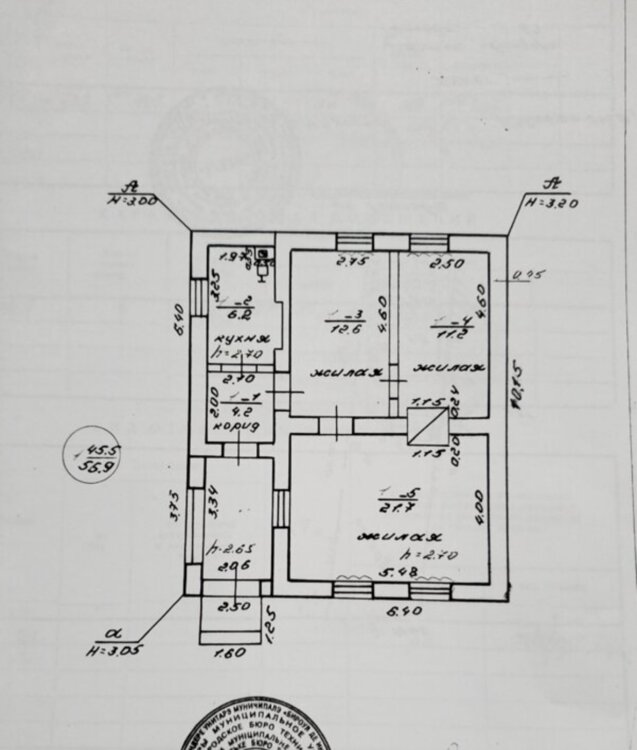 А
H=3.00
А
H=3.20
1.97
0.50
2.75
2.50
0.45
3.25
6.40
1-2
6.2
кухня
h=2.70
1-3
12.6
4.60
1-4
11.2
4.60
жилая
жилая
10.15
2.70
2.00
1-1
4.2
корид
1.15
0.24
1.15
0.20
1 45.5
55.9
3.75
3.34
1-5
21.7
4.00
жилая
h=2.65
h=2.70
2.06
5.48
2.50
6.40
1.25
1.60
а
H=3.05
МУНИЦИПАЛЬНОЕ
БЮРО ТЕХН